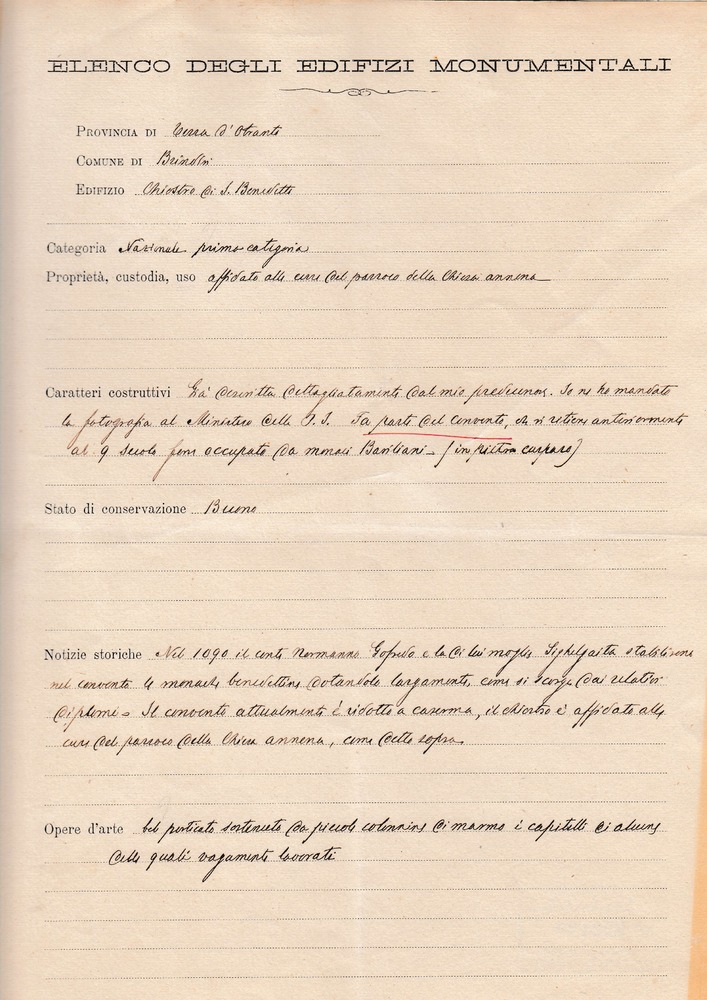 ELENCO DEGLI EDIFIZI MONUMENTALI
PROVINCIA DI Terra d'Otranto
COMUNE DI Brindisi
EDIFIZIO Chiostro di S. Benedetto
Categoria Nazionale prima categoria
Proprietà, custodia, uso affidato alle cure del parroco della Chiesa annessa
Caratteri costruttivi Già descritta dettagliatamente dal mio predecessore. Io ne ho mandato
la fotografia al Ministero della P. I. Fa parte del convento, che si ritiene anteriormente
al 9 secolo fosse occupato da monaci Basiliani - (in pietra carparo)
Stato di conservazione Buono
Notizie storiche Nel 1090 il conte Normanno Gofredo e la di lui moglie Sighelgaita stabilirono
nel convento le monache benedettine dotandolo largamente, come si scorge dai relativi
diplomi = Il convento attualmente è ridotto a caserma, il chiostro è affidato alle
cure del parroco della Chiesa annessa, come detto sopra
Opere d'arte bel porticato sostenuto da piccole colonnine di marmo i capitelli di alcune
delle quali vagamente lavorati